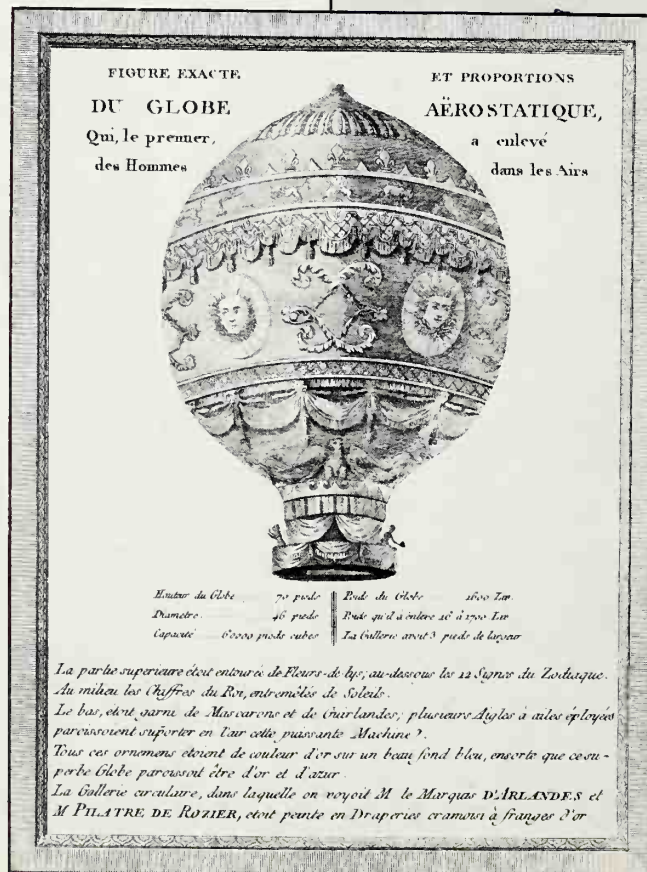 FIGURE EXACTE ET PROPORTIONS
DU GLOBE AËROSTATIQUE,
Qui, le premier, a enlevé
des Hommes dans les Airs
Hauteur du Globe 70 pieds Poids du Globe 1600 Liv.
Diametre 46 pieds Poids qu'il à enleve 16 à 1700 Liv
Capacité 60000 pieds cubes La Gallerie avoit 3 pieds de largeur
La partie superieure étoit entourée de Fleurs-de-lys; au-dessous les 12 Signes du Zodiaque.
Au milieu les Chiffres du Roi, entremêlés de Soleils.
Le bas, étoit garni de Mascarons et de Guirlandes; plusieurs Aigles à ailes éployées
paroissoient suporter en l'air cette puissante Machine.
Tous ces ornemens etoient de couleur d'or sur un beau fond bleu, ensorte que ce su-
perbe Globe paroissoit être d'or et d'azur.
La Gallerie circulaire, dans laquelle on voyoit M le Marquis D'ARLANDES et
M PILATRE DE ROZIER, etoit peinte en Draperies cramoisi à franges d'or